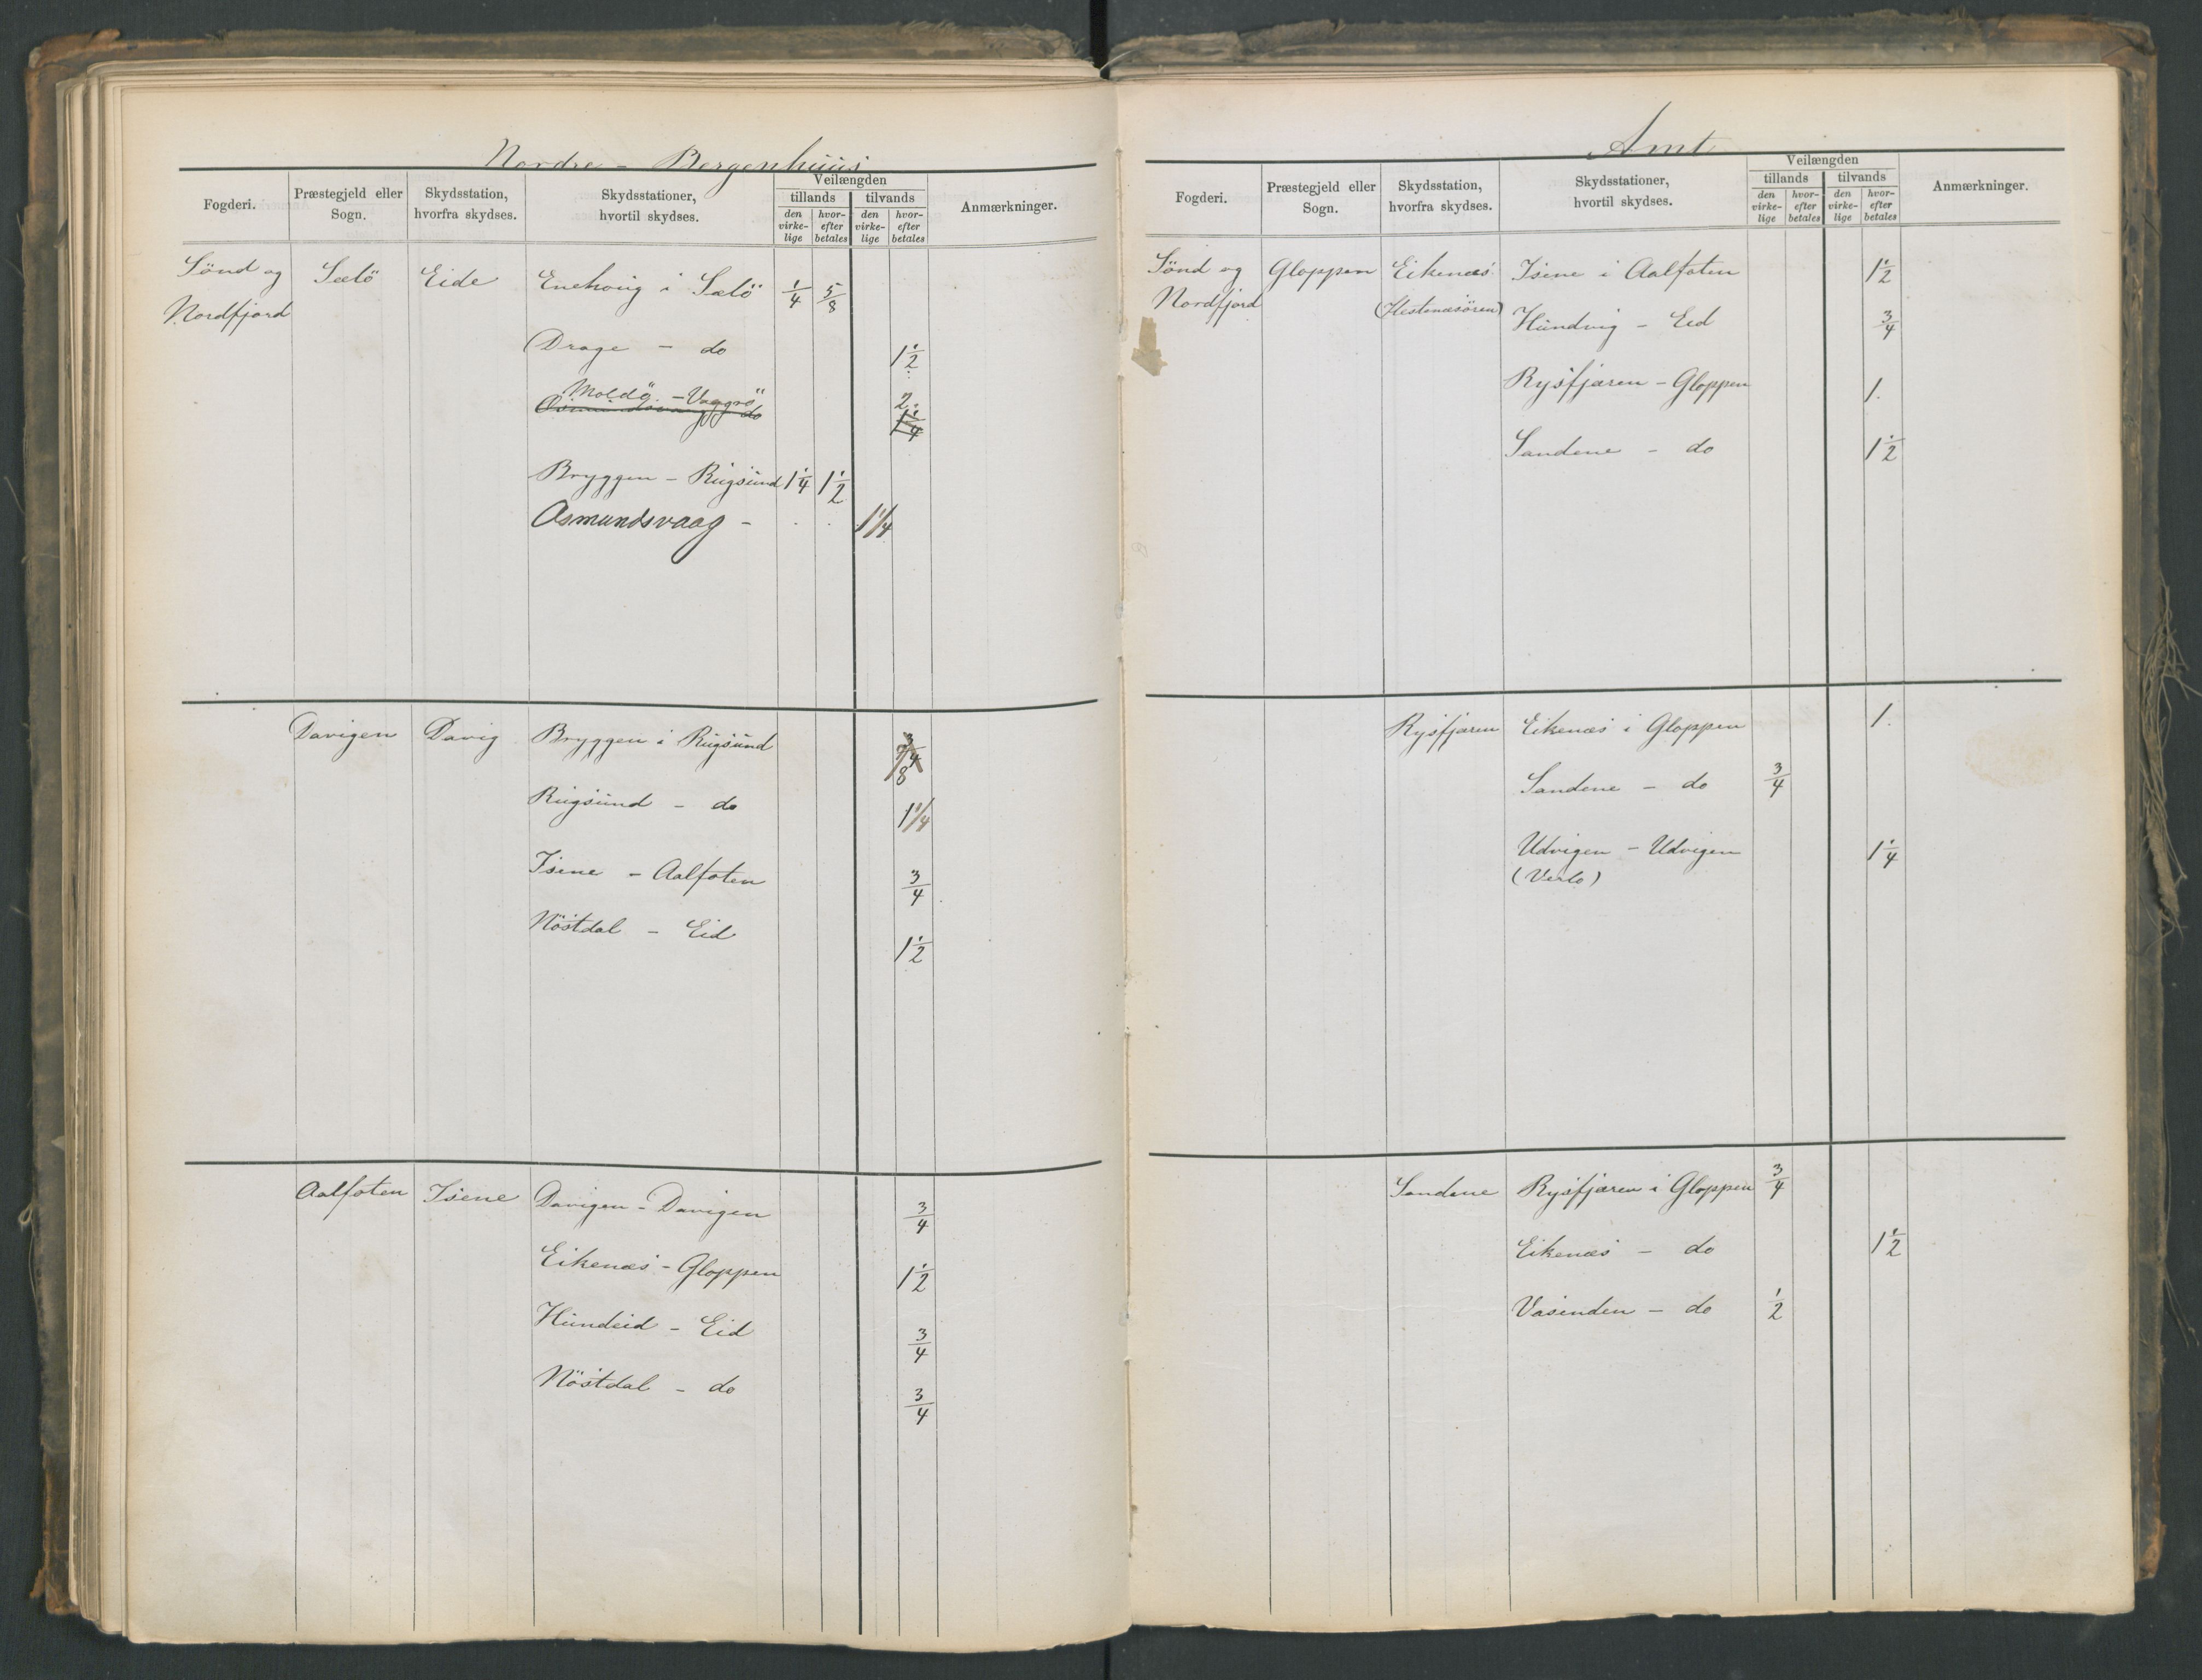 Nordre - Bergenhuus
Fogderi. Præstegjeld eller Sogn. Skydsstation, hvorfra skydses. Skydsstationer, hvortil skydses. Veilængden tillands tilvands den virkelige hvorefter betales den virkelige hvorefter betales Anmærkninger.
Sönd og Selö Eide Enehoug i Selö 1/4 5/8
Nordfjord
Drage - do 1 1/2
Moldö - Vaagsö 2.
Osmundsvaag do 1 1/4
Bryggen - Rugsund 1 1/4 1 1/2
Osmundsvaag - . . 1 1/4
Davigen Davig Bryggen i Rugsund 3/4 7/8
Rugsund - do 1 1/4
Isene - Aalfoten 3/4
Nöstdal - Eid 1 1/2
Aalfoten Isene Davigen - Davigen 3/4
Eikenæs - Gloppen 1 1/2
Hundeid - Eid 3/4
Nöstdal - do 3/4
Amt
Fogderi. Præstegjeld eller Sogn. Skydsstation, hvorfra skydses. Skydsstationer, hvortil skydses. Veilængden tillands tilvands den virkelige hvorefter betales den virkelige hvorefter betales Anmærkninger.
Sönd og Gloppen Eikenæs Isene i Aalfoten 1 1/2
Nordfjord (Hestenæsören) Hundvig - Eid 3/4
Rysfjæren - Gloppen 1.
Sandene - do 1 1/2
Rysfjæren Eikenæs i Gloppen 1.
Sandene - do 3/4
Udvigen - Udvigen 1 1/4
(Verlo)
Sandene Rysfjæren i Gloppen 3/4
Eikenæs - do 1 1/2
Vasenden - do 1/2